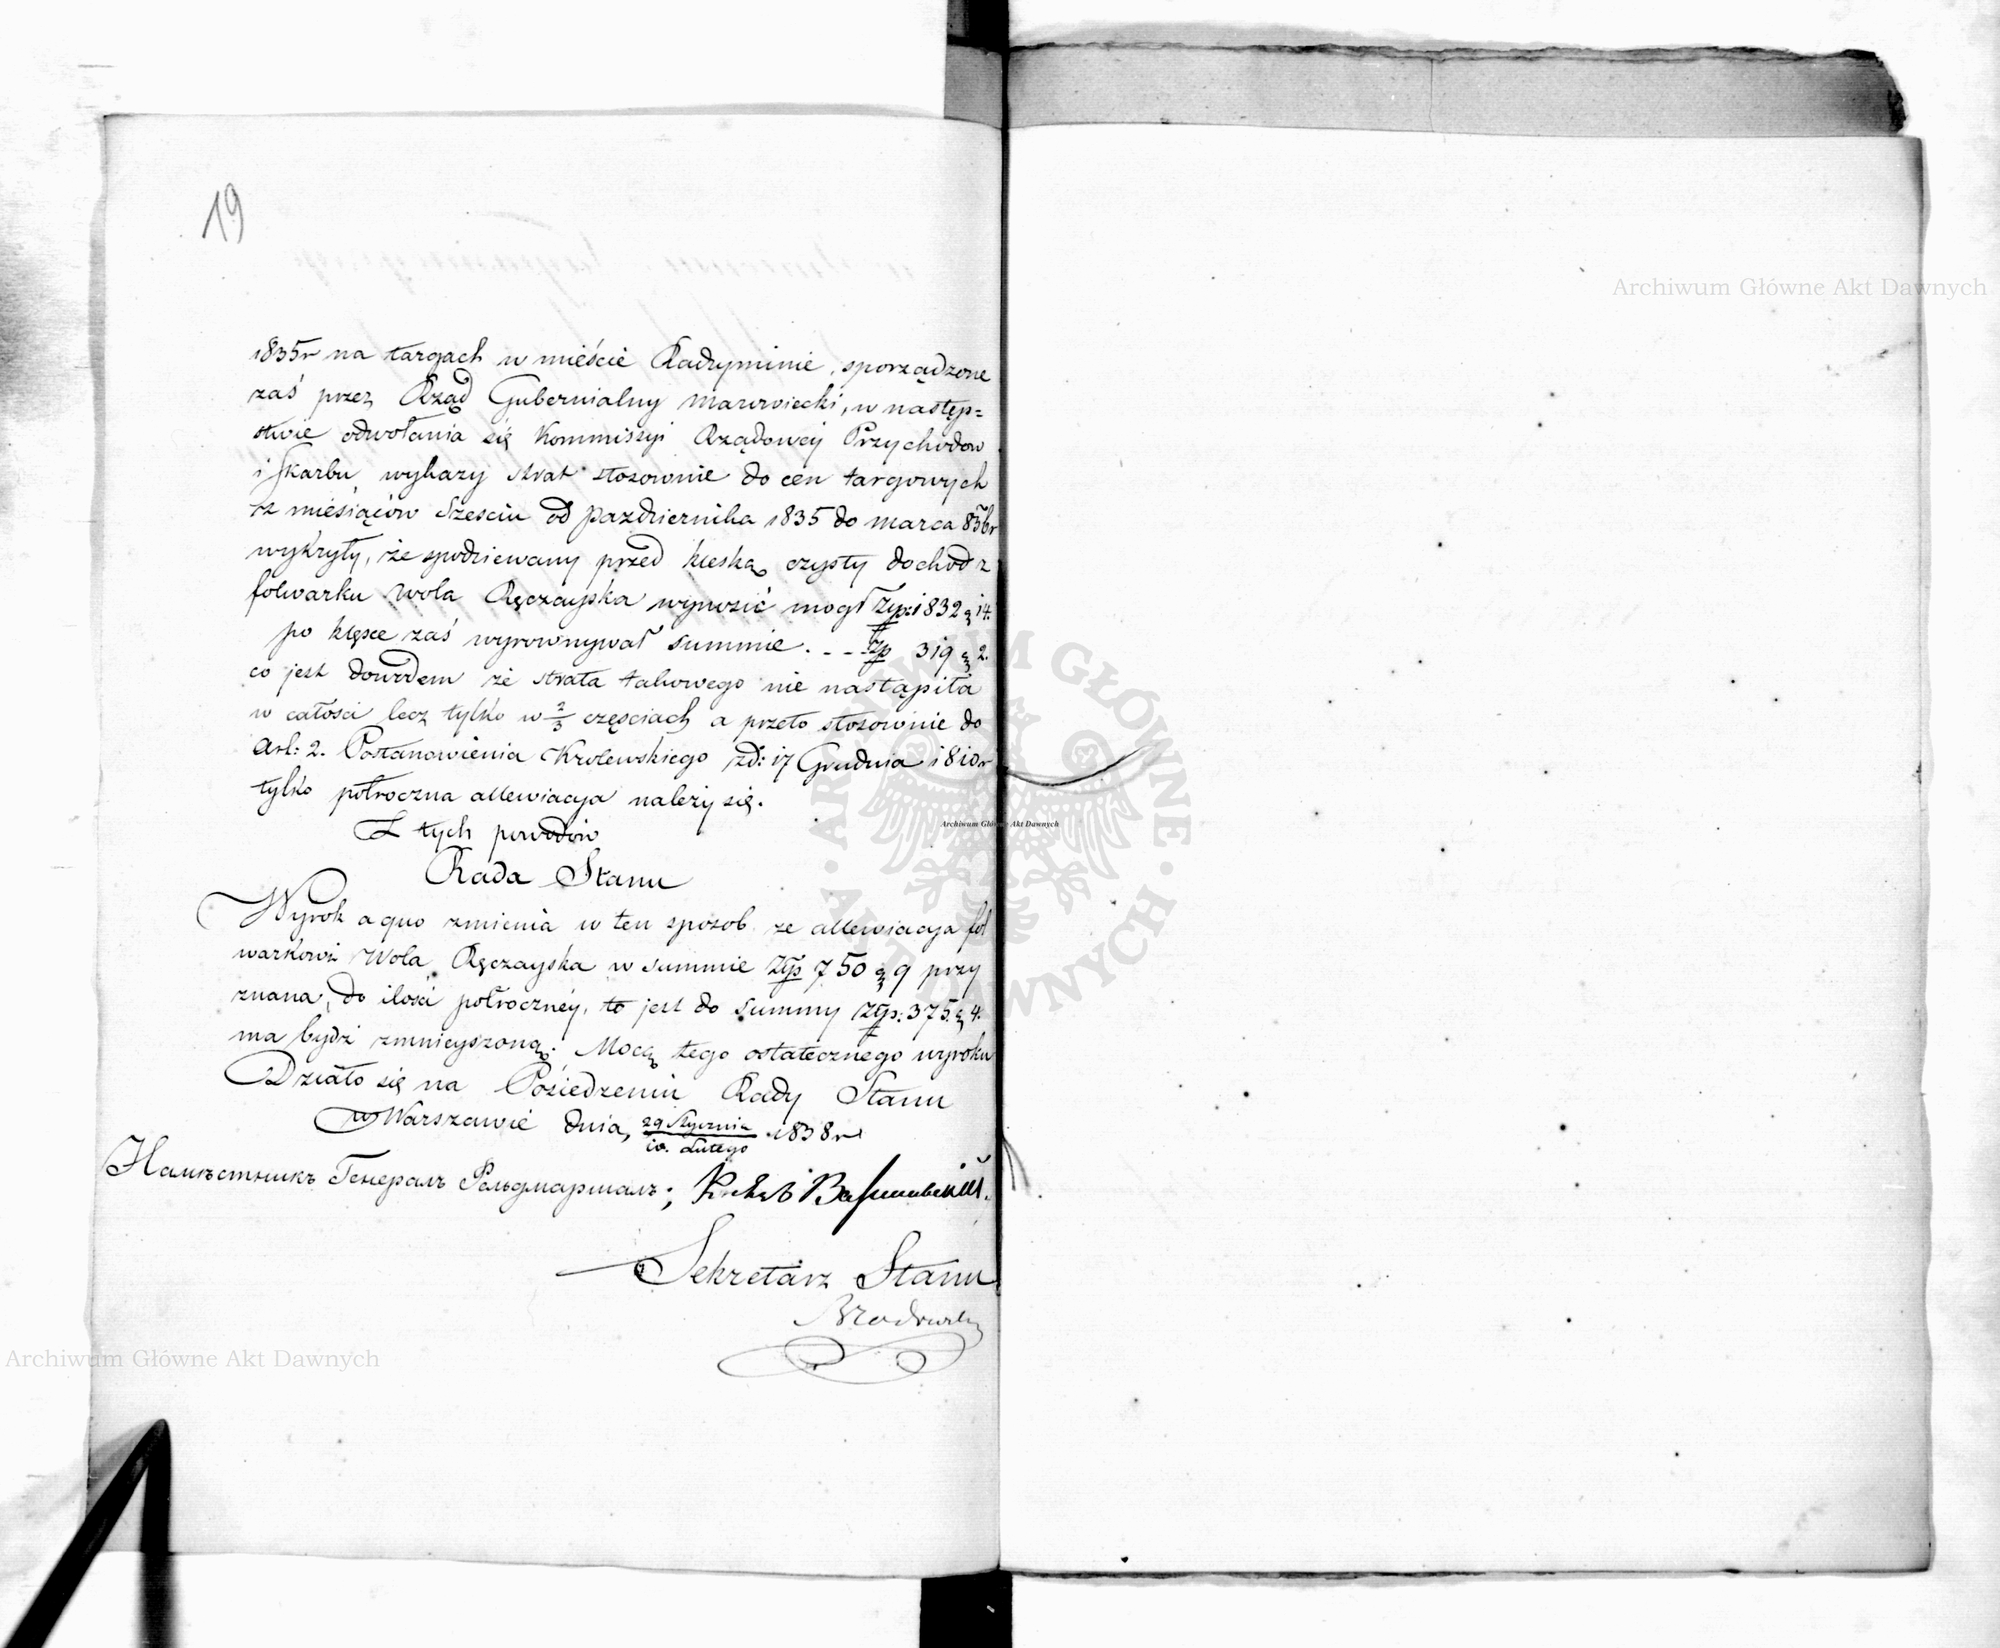 19
1835r na targach w mieście Radzyminie, sporządzone
zaś przez Rząd Gubernialny Mazowiecki, w następ=
stwie odwołania się Kommissyi Rządowéj Przychodow
i Skarbu, wykazy strat stosownie do cen targowych
z miesiąców Sześciu od Pazdziernika 1835 do Marca 836r
wykryły, że spodziewany przed klęską czysty dochod z
folwarku Wola Ręczayska wynosić mogł Złp: 1832 g 14.
po klęsce zaś wyrownywał summie . - - - Złp 319 g 2.
co jest dowodem że strata takowego nie nastąpiła
w całości lecz tylko w 2/3 częściach a przeto stosownie do
Art: 2. Postanowienia Krolewskiego z d: 17 Grudnia 1810r
tylko połroczna allewiacya należy się.
Z tych powodów
Rada Stanu
Wyrok a quo zmienia w ten sposob że allewiacya fol
warkowi Wola Ręczayska w summie Złp 750 g 9 przy
znana, do ilości połrocznéy, to jest do Summy Złp: 375. g 4.
ma bydź zmnieyszoną. Mocą tego ostatecznego wyroku
Działo się na Posiedzeniu Rady Stanu
w Warszawie dnia 29 Stycznia / 10. Lutego 1838r
Намѣстникъ Генералъ Фельдмаршалъ; Князь Варшавскій.
Sekretarz Stanu
Archiwum Główne Akt Dawnych
Archiwum Główne Akt Dawnych
Archiwum Główne Akt Dawnych
ARCHIWUM GŁÓWNE AKT DAWNYCH